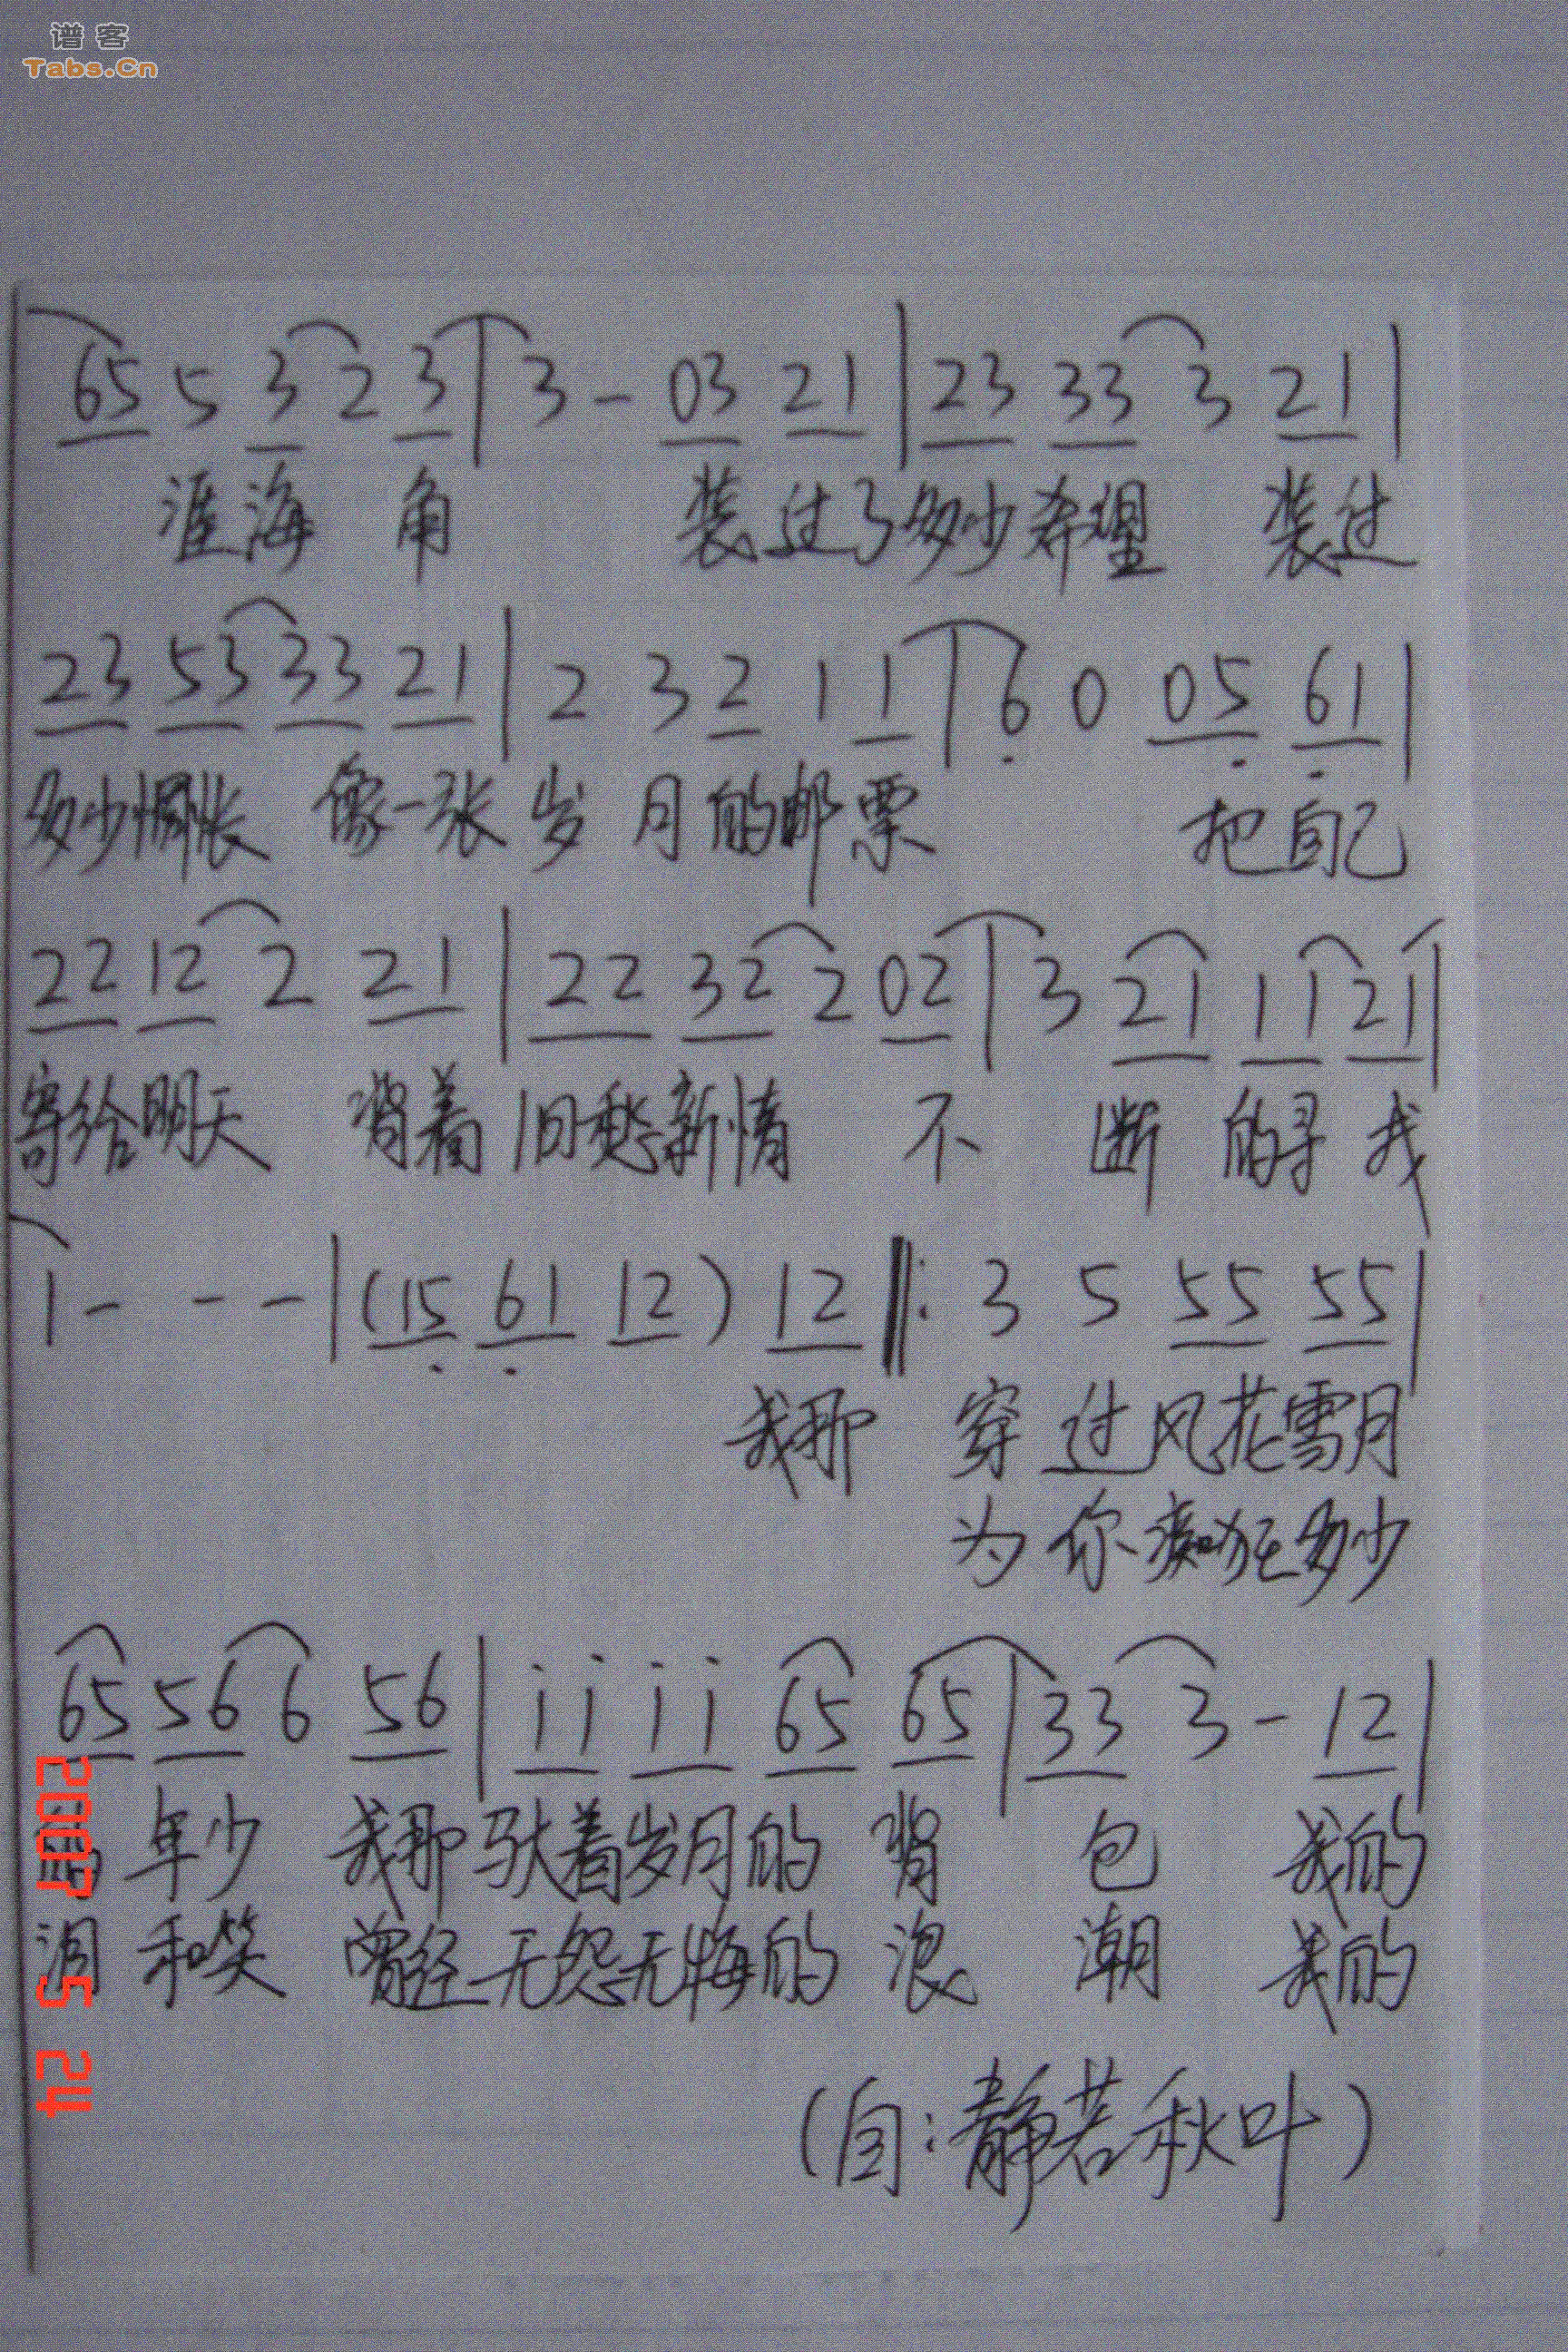 谱客
Tabs.Cn
65 5 3 2 3 | 3 - 03 21 | 23 33 3 21 |
涯海 角 装过了多少希望 装过
23 53 33 21 | 2 3 2 1 1 | 6 0 05 61 |
多少惆怅 像一张岁月的邮票 把自己
22 12 2 21 | 22 32 2 02 | 3 21 11 21 |
寄给明天 背着旧愁新情 不断的寻找
1 - - - | (15 61 12) 12 ‖: 3 5 55 55 |
我那 穿过风花雪月
为你痴狂多少
65 56 6 56 | 11 11 65 65 | 33 3 - 12 |
年少 我那驮着岁月的背包 我的
泪和笑 曾经无怨无悔的浪潮 我的
(自:静若秋叶)
2007 5 24